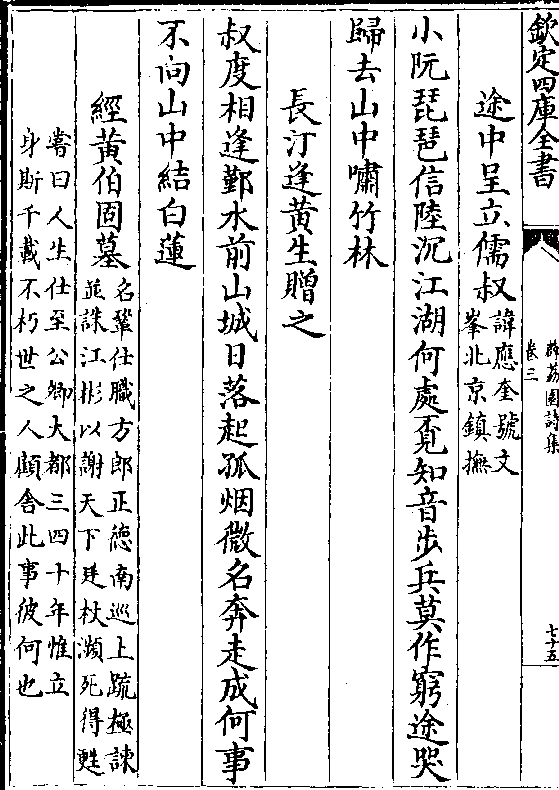 欽定四庫全書
薜荔園詩集
卷三
七十五
途中呈立儒叔諱應奎號文
峯北京鎮撫
小阮琵琶信陸沉江湖何處覓知音步兵莫作窮途哭
歸去山中嘯竹林
長汀逢黃生贈之
叔度相逢鄞水前山城日落起孤烟微名奔走成何事
不向山中結白蓮
經黃伯固墓名鞏仕職方郎正德南巡上疏極諫
並誅江彬以謝天下廷杖瀕死得甦
嘗曰人生仕至公卿大都三四十年惟立
身斯千載不朽世之人顧舍此事彼何也